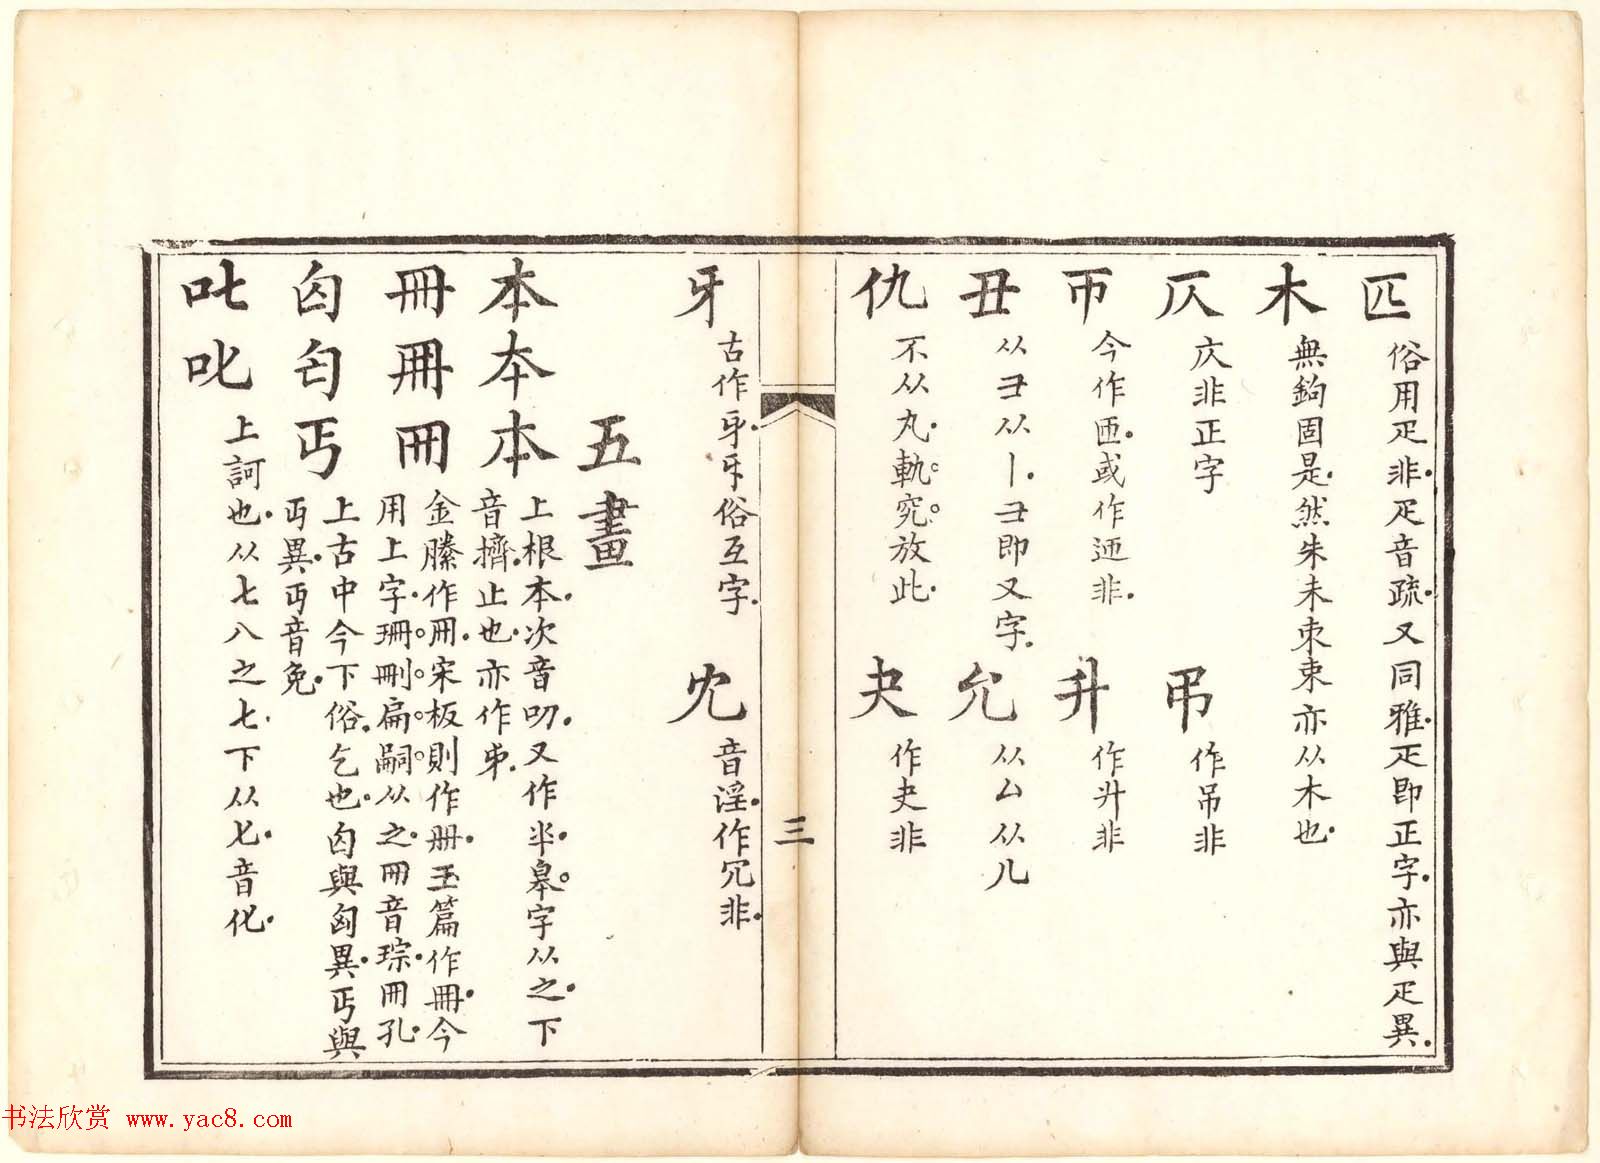 匹 俗用疋非疋音疏又同雅疋即正字亦與疋異
木 無鉤固是然朱未朿束亦从木也
仄 庂非正字 弔 作吊非
帀 今作匝或作迊非 升 作廾非
丑 从彐从丨彐即又字 允 从厶从儿
仇 不从丸軌究放此 夬 作叏非
三
牙 古作㸦㸦俗互字 冘 音淫作冗非
五畫
本 夲 上根本次音叨又作𠦂皋字从之下
音擠止也亦作
冊 金縢作𠕋宋板則作册玉篇作冊今
用上字珊刪扁嗣从之𠕁音琮𠕁孔
匃 匄 丐 上古中今下俗乞也匃與匈異丐與
丏異丏音免
叱 𠮟 上訶也从七八之七下从𠤎音化
书法欣赏 www.yac8.com